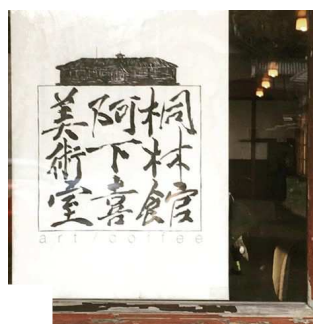 桐林館
阿下喜
美術室
art / coffee